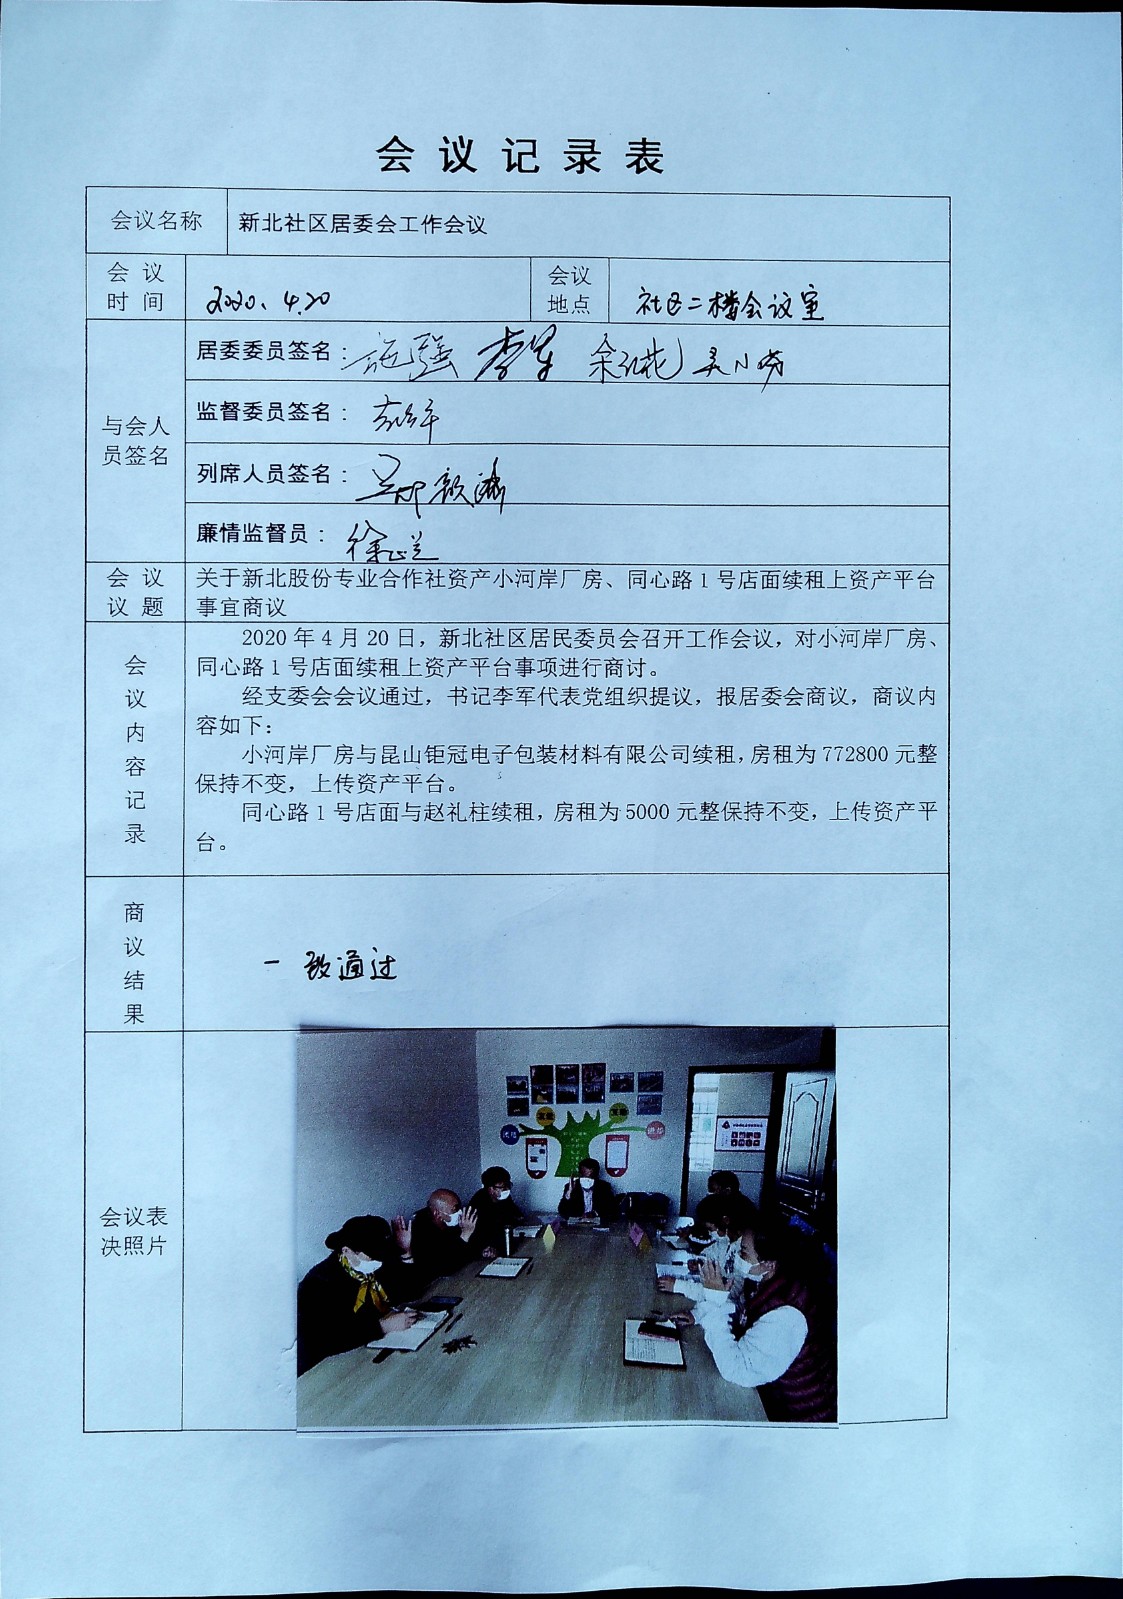 会议记录表
会议名称 新北社区居委会工作会议
会议时间 2020.4.20 会议地点 社区二楼会议室
与会人员签名
居委委员签名：施强 李军 余红花
监督委员签名：
列席人员签名：
廉情监督员：徐正兰
会议议题
关于新北股份专业合作社资产小河岸厂房、同心路1号店面续租上资产平台
事宜商议
会议内容记录
2020年4月20日，新北社区居民委员会召开工作会议，对小河岸厂房、
同心路1号店面续租上资产平台事项进行商讨。
经支委会会议通过，书记李军代表党组织提议，报居委会商议，商议内
容如下：
小河岸厂房与昆山钜冠电子包装材料有限公司续租，房租为772800元整
保持不变，上传资产平台。
同心路1号店面与赵礼柱续租，房租为5000元整保持不变，上传资产平
台。
商议结果
一致通过
会议表
决照片